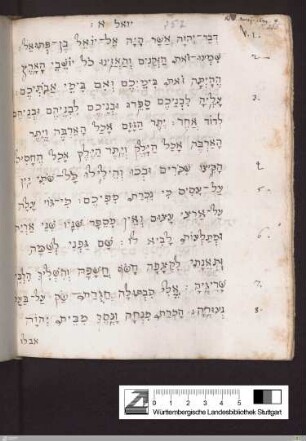 יואל א׃
252
V. 1.
דבר־יהוה אשר היה אל־יואל בן־פתואל׃
שמעו־זאת הזקנים והאזינו כל יושבי הארץ
2
ההיתה זאת בימיכם ואם בימי אבותיכם׃
עליה לבניכם ספרו ובניכם לבניהם ובניהם
3
לדור אחר׃ יתר הגזם אכל הארבה ויתר
הארבה אכל הילק ויתר הילק אכל החסיל׃
4
הקיצו שכורים ובכו והילילו כל־שתי יין
5
על־עסיס כי נכרת מפיכם׃ כי־גוי עלה
על־ארצי עצום ואין מספר שניו שני אריה
6
ומתלעות לביא לו׃ שם גפני לשמה
ותאנתי לקצפה חשף חשפה והשליך הלבינו
7
שריגיה׃ אלי כבתולה חגרת־שק על־בעל
נעוריה׃ הכרת מנחה ונסך מבית יהוה
8
אבלו
Württembergische Landesbibliothek Stuttgart